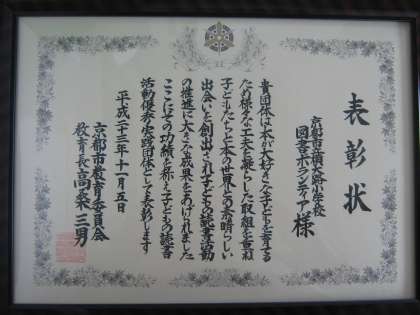 表彰状
京都市立横大路小学校
図書ボランティア様
貴団体は本が大好きな子どもを育する
ため様々な工夫を凝らした取組を重ね
子どもたちと本の世界との素晴らしい
出会いを創出され子どもの読書活動
の推進に大きな成果をあげられました
ここにその功績を称え子どもの読書
活動優秀実践団体として表彰します
平成二十三年十一月五日
京都市教育委員会
教育長高桑三男